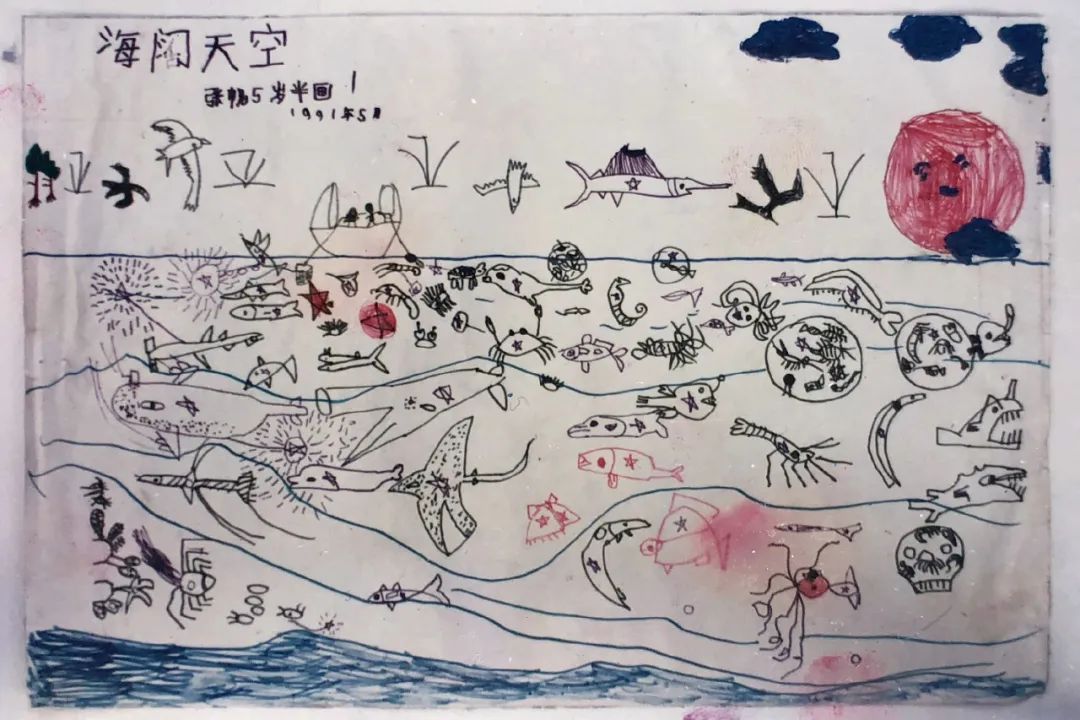 海阔天空
张畅5岁半画
1991年5月